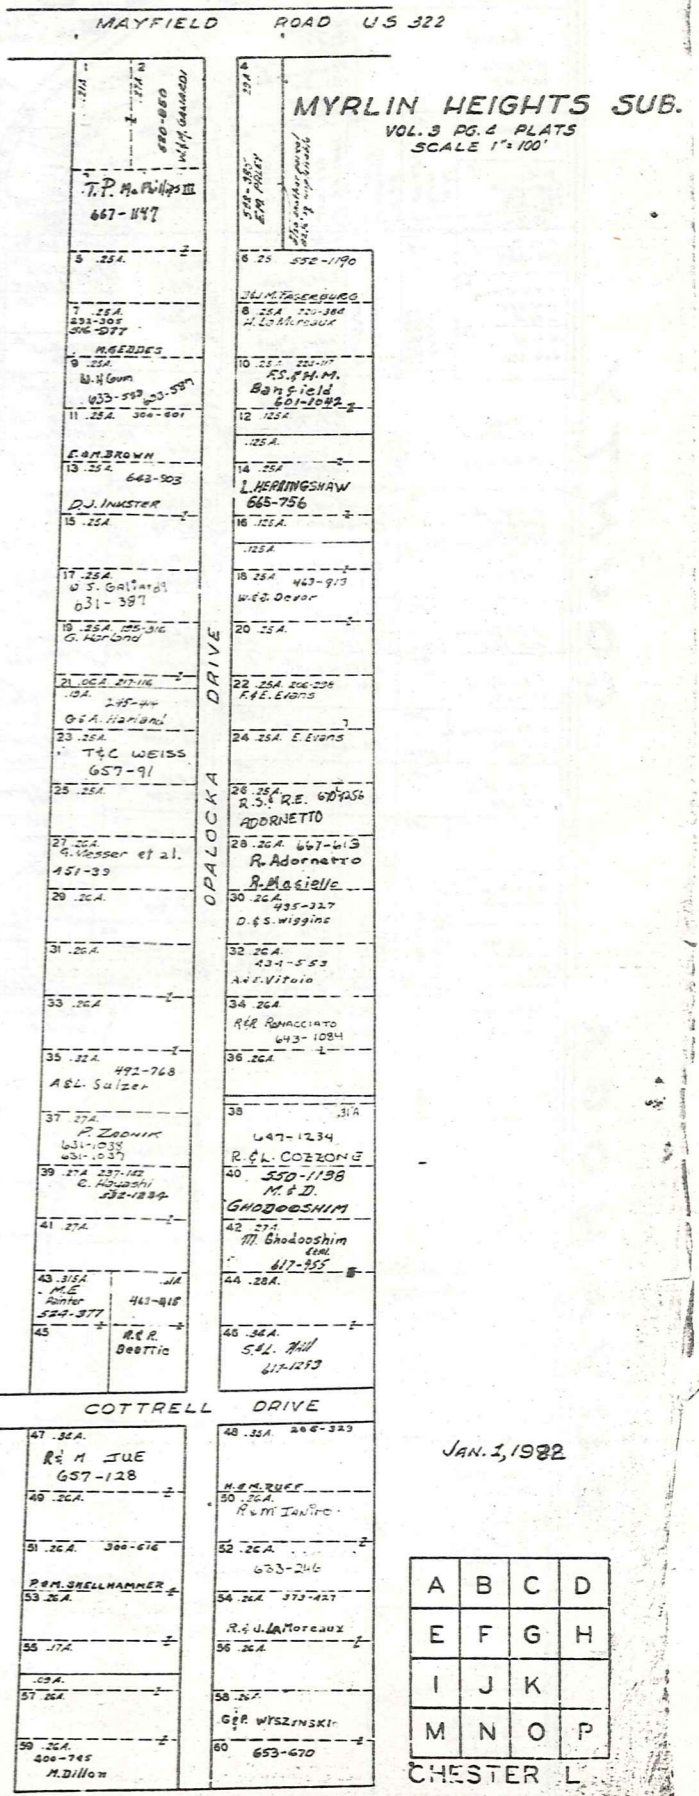 MAYFIELD ROAD US 322
MYRLIN HEIGHTS SUB.
VOL. 3 PG. 4 PLATS
SCALE 1"=100'
2
.27A
680-860
W.&M. GALIARDI
T.P. McPhillips III
667-1147
5 .25A.
7 .25A.
292-305
306-977
M.GEDDES
9 .25A.
W.H Gum
633-585 633-587
11 .25A. 300-601
E.&M.BROWN
13 .25A
643-903
D.J. INKSTER
15 .25A.
17 .25A.
W S. Galiardi
631-387
19 .25A. 195-316
G. Harland
21 .06A. 217-116
.19A.
245-414
G&A. Harland
23 .25A
T&C WEISS
657-91
25 .25A.
27 .26A.
G. Messer et al.
451-39
29 .26A.
31 .26A.
33 .26A
35 .32A.
492-768
A&L. Sulzer
37 .27A.
P. ZADNIK
631-1038
631-1037
39 .27A 237-142
C. Hayashi
532-1234
41 .27A.
43 .315A
M.E
Painter
524-377
463-415
45
R.& R.
Beattie
OPALOCKA DRIVE
4
.29A
598-385
E.M. PALEY
6 .25 552-1190
J&J.M.FASERBURG
8 .25A 220-384
H. LaMoreaux
10 .25A 223-117
F.S.&H.M.
Banfield
601-1042
12 .125A
.125A.
14 .25A
L.HERRINGSHAW
665-756
16 .125A.
.125A.
18 .25A 463-913
W.&E. Devor
20 .25A.
22 .25A. 206-238
F.&E. Evans
24 .25A. E. Evans
26 .25A.
R.S.& R.E. 670-256
ADORNETTO
28 .26A. 667-613
R. Adornetto
R. Masiello
30 .26A.
435-327
D.&S. Wiggins
32 .26A.
434-553
A.&E. Vitolo
34 .26A.
R&R RONACCIATO
643-1084
36 .26A.
38 .31A
647-1234
R.&L. COZZONE
40 550-1138
M.& D.
GHODOOSHIM
42 .27A.
M. Ghodooshim
etal.
617-955
44 .28A.
46 .36A.
S.&L. Hill
617-1253
COTTRELL DRIVE
47 .36A.
R& M JUE
657-128
49 .26A.
51 .26A. 300-616
P.&M. SHELLHAMMER
53 .26A.
55 .17A.
.09A.
57 .26A.
59 .26A.
200-745
M.Dillon
48 .35A 206-329
H.&M.RUFF
50 .26A.
R&M IANIRO
52 .26A.
633-246
54 .26A. 373-427
R.& J.LaMoreaux
56 .26A.
58 .26A
G&P. WYSZYNSKI
60
653-670
JAN. 1, 1982
A B C D
E F G H
I J K
M N O P
CHESTER L